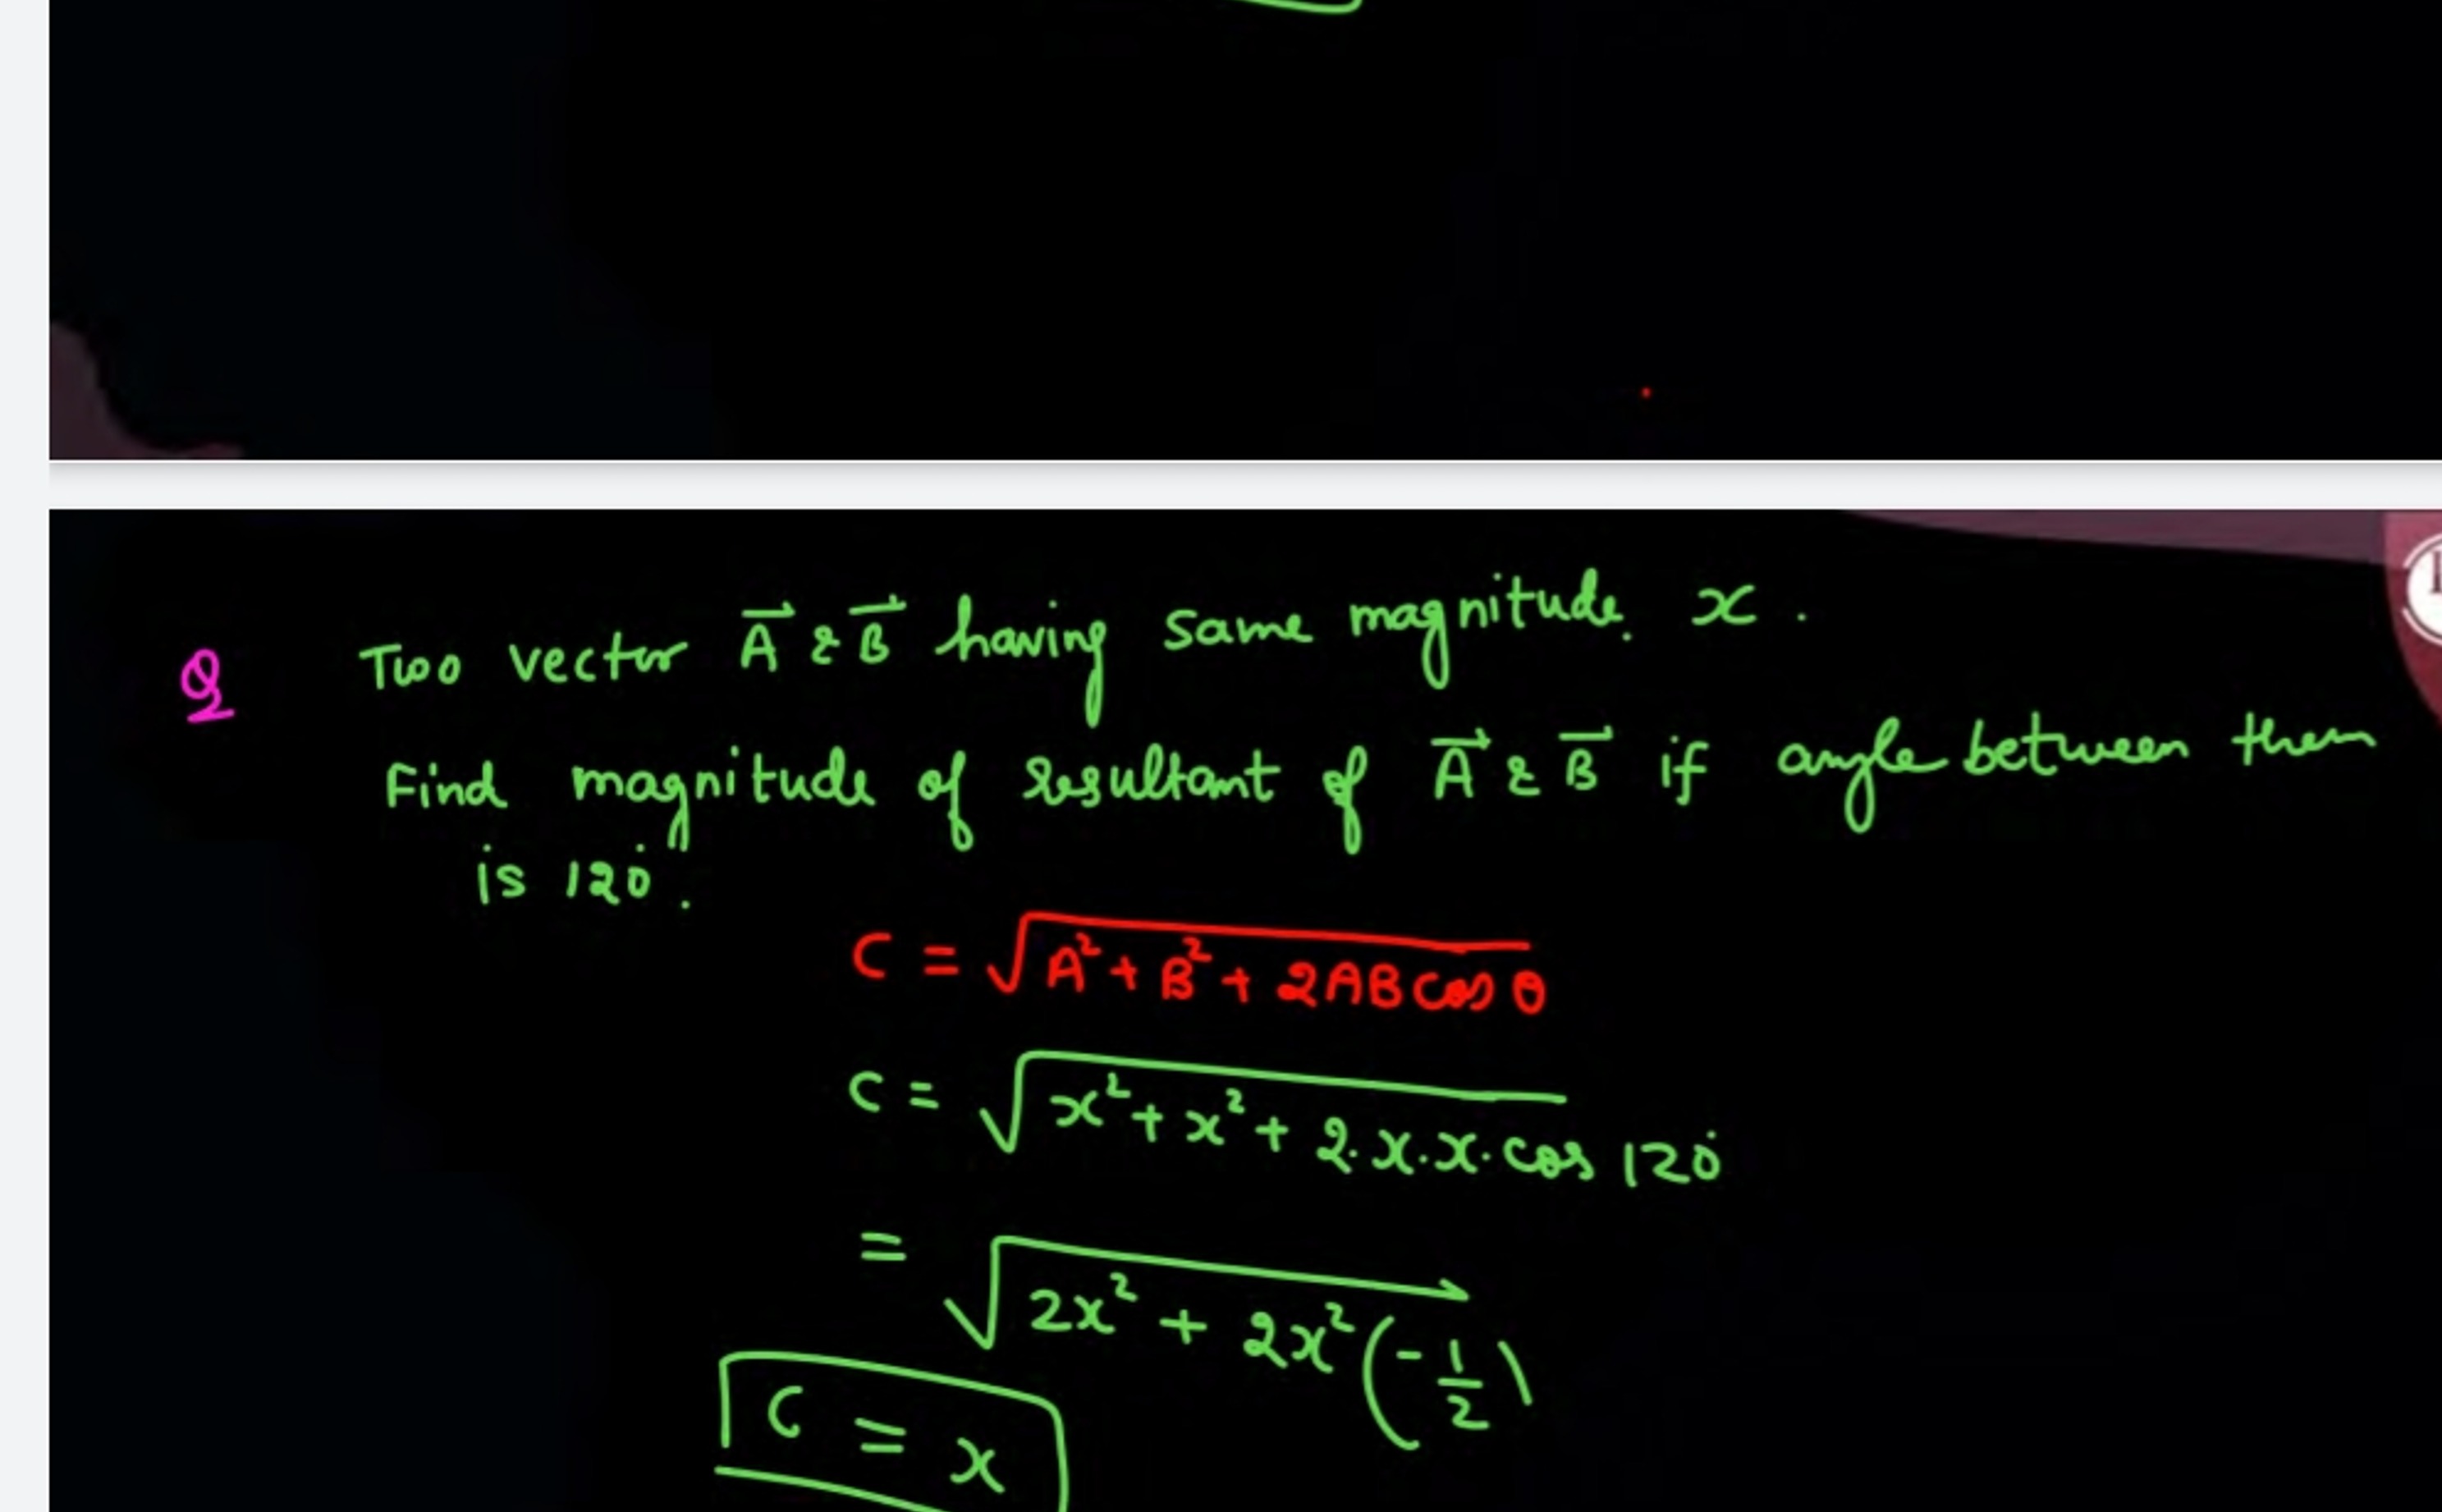 Q Two vector A⃗ & B⃗ having same magnitude. x.
Find magnitude of resultant of A⃗ & B⃗ if angle between them
is 120°.
C = √(A² + B² + 2AB cos θ)
C = √(x² + x² + 2.x.x. cos 120°)
= √(2x² + 2x² (-1/2))
C = x